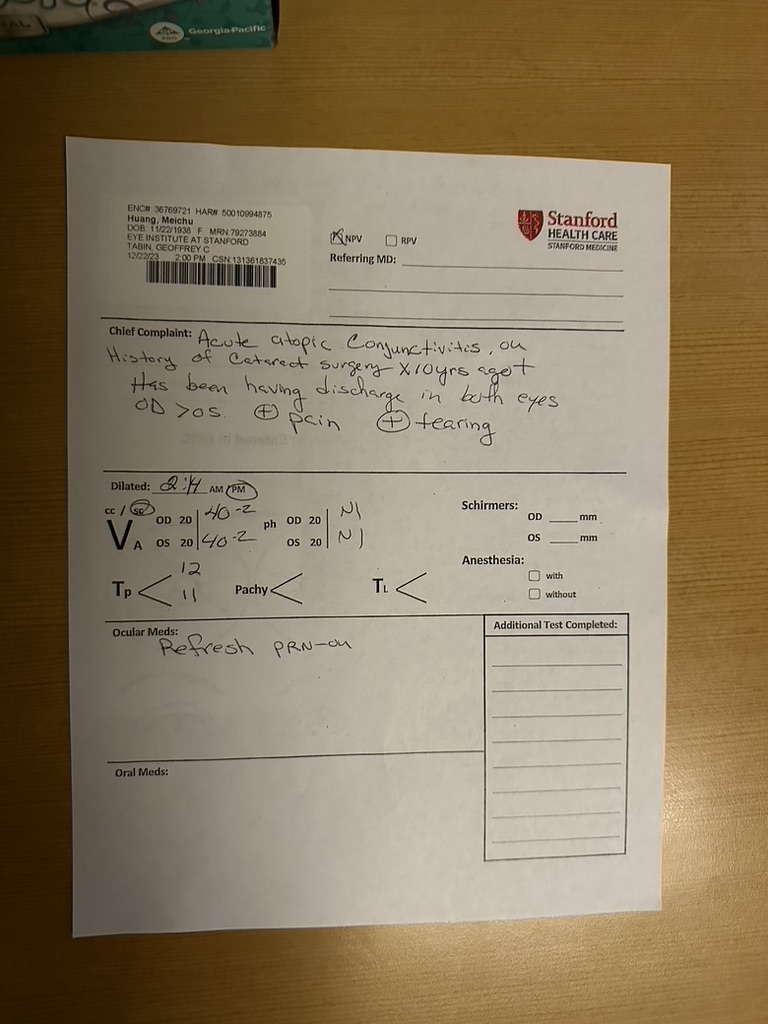 Georgia-Pacific
ENC# 36769721 HAR# 50010994875
Huang, Meichu
DOB: 11/22/1938 F MRN:79273884
EYE INSTITUTE AT STANFORD
TABIN, GEOFFREY C
12/22/23 2:00 PM CSN:131361837435
NPV RPV
Referring MD:
Stanford
HEALTH CARE
STANFORD MEDICINE
Chief Complaint: Acute atopic Conjunctivitis, ou
History of Cataract surgery x10yrs ago+
Has been having discharge in both eyes
OD >OS. + pain + tearing
Dilated: 2:14 AM/PM
cc / sc
VA OD 20 40-2 ph OD 20 NI
OS 20 40-2 OS 20 NI
Schirmers:
OD mm
OS mm
Anesthesia:
with
without
Tp 12
11
Pachy
TL
Ocular Meds:
Refresh PRN-ou
Additional Test Completed:
Oral Meds: